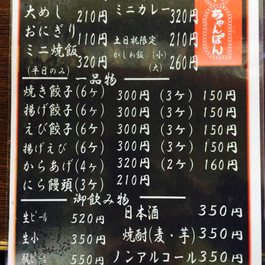 大めし 210円
ミニカレー 320円
おにぎり 110円
土日祝限定
かしわ飯 (小) 210円
(大) 260円
ミニ焼飯 320円
(平日のみ)
ちゃんぽん
一品物
焼き餃子(6ヶ) 300円 (3ヶ) 150円
揚げ餃子(6ヶ) 300円 (3ヶ) 150円
えび餃子(6ヶ) 300円 (3ヶ) 150円
揚げえび(6ヶ) 300円 (3ヶ) 150円
からあげ(4ヶ) 320円 (2ヶ) 160円
にら饅頭(3ヶ) 210円
御飲み物
生ビール 520円
日本酒 350円
生小 350円
焼酎(麦・芋) 350円
瓶ビール 550円
ノンアルコール 350円